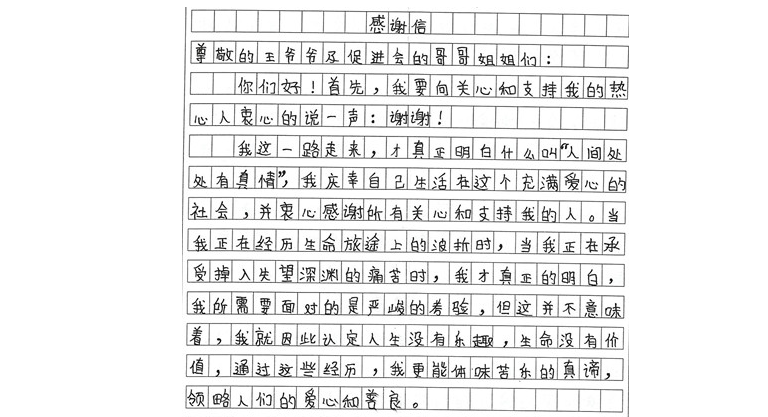 感谢信
尊敬的王爷爷及促进会的哥哥姐姐们：
你们好！首先，我要向关心和支持我的热
心人衷心的说一声：谢谢！
我这一路走来，才真正明白什么叫“人间处
处有真情”，我庆幸自己生活在这个充满爱心的
社会，并衷心感谢所有关心和支持我的人。当
我正在经历生命旅途上的波折时，当我正在承
受掉入失望深渊的痛苦时，我才真正的明白，
我所需要面对的是严峻的考验，但这并不意味
着，我就因此认定人生没有乐趣，生命没有价
值，通过这些经历，我更能体味苦乐的真谛，
领略人们的爱心和善良。